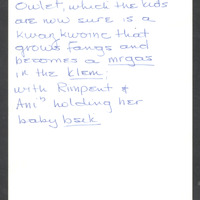 Owlet, which the kids
are now sure is a
kwan kwome that
grows fangs and
becomes a mrgas
in the klem;
with Rimpent &
Ani holding her
baby bsek